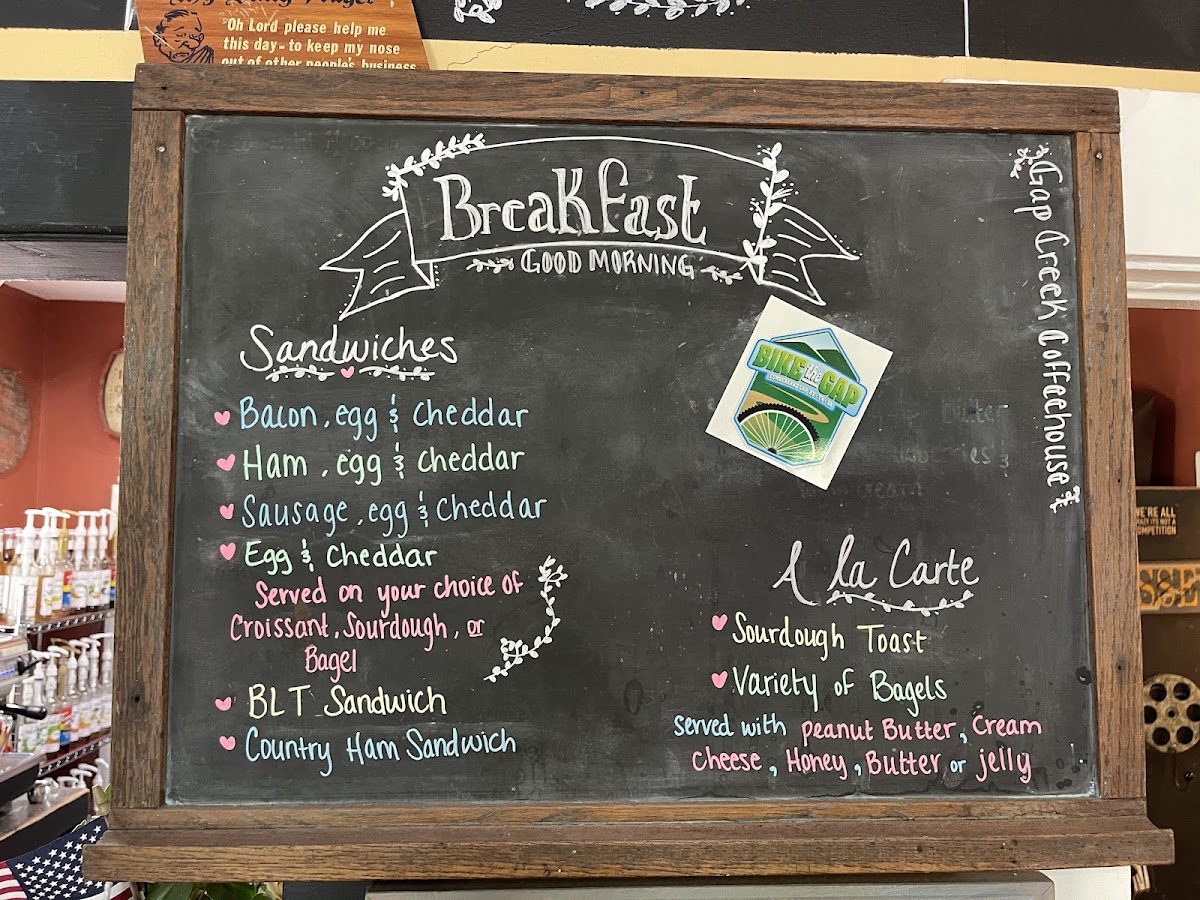 Oh Lord please help me
this day - to keep my nose
out of other people's business
Breakfast
GOOD MORNING
Gap Creek Coffeehouse
Sandwiches
Bacon, egg & Cheddar
Ham, egg & cheddar
Sausage, egg & Cheddar
Egg & Cheddar
Served on your choice of
Croissant, Sourdough, or
Bagel
BLT Sandwich
Country Ham Sandwich
BIKE the GAP
A la Carte
Sourdough Toast
Variety of Bagels
served with peanut Butter, Cream
Cheese, Honey, Butter or jelly
WE'RE ALL
CRAZY IT'S NOT A
COMPETITION